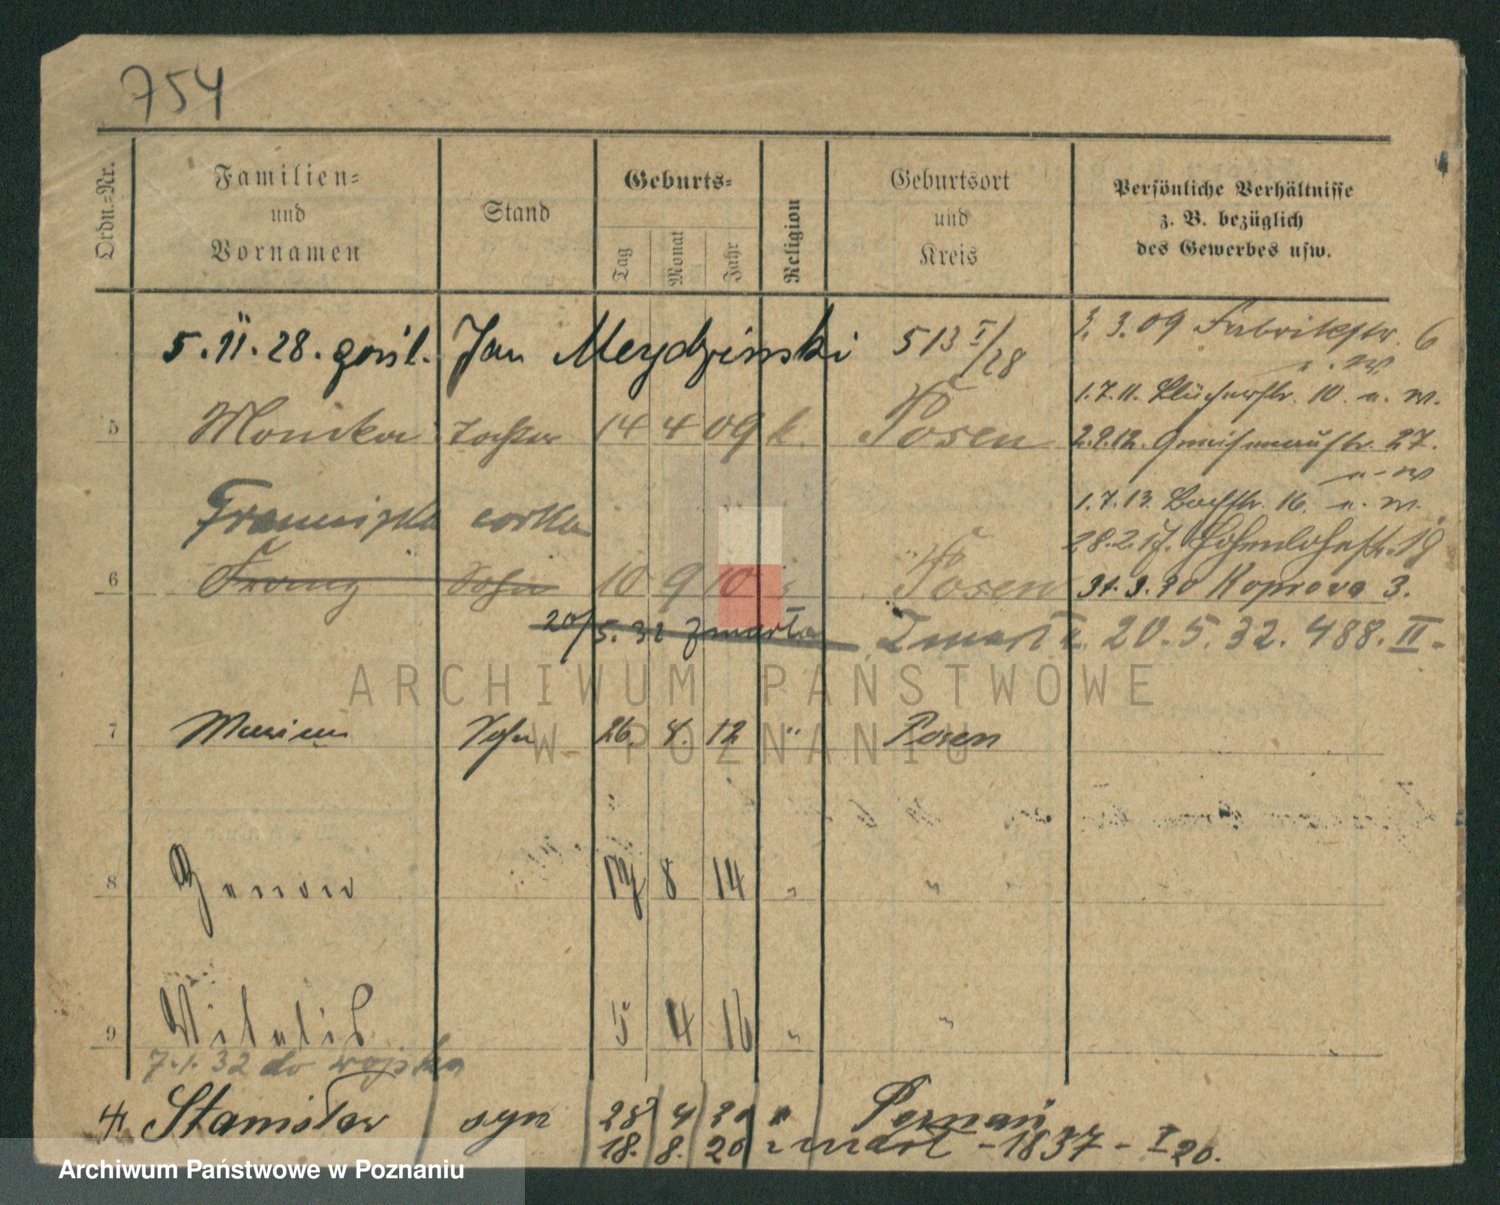 754
Ordn.-Nr.
Familien-
und
Vornamen
Stand
Geburts-
Tag
Monat
Jahr
Religion
Geburtsort
und
Kreis
Persönliche Verhältnisse
z. B. bezüglich
des Gewerbes usw.
3.3.09 Fabrikstr. 6
u. W
5.11.28. gośl. Jan Meydziński 513 I/28
1.7.11. Blücherstr. 10. u. W.
5 Monika Tochter 14 4 09 k. Posen 2.9.12. Gneisenaustr. 27.
u. W
Franciszka corka 1.7.13. Bachstr. 16. u. W.
28.2.17. Hohenlohestr. 19
6 Franz Sohn 10 9 10 " Posen 31.3.20 Koprova 3.
20/5.32 zmarła Zmarła 20.5.32. 488. II.
ARCHIWUM PAŃSTWOWE
W POZNANIU
7 Marian Sohn 26. 8. 12 " Posen
8 Zenon 17 8 14 " "
9 Vitalis 5 4 16 " "
7.1.32 do wojska
Stanisław syn 28 4 20 " Poznań
18. 8. 20 zmarł - 1837 - I 20.
Archiwum Państwowe w Poznaniu